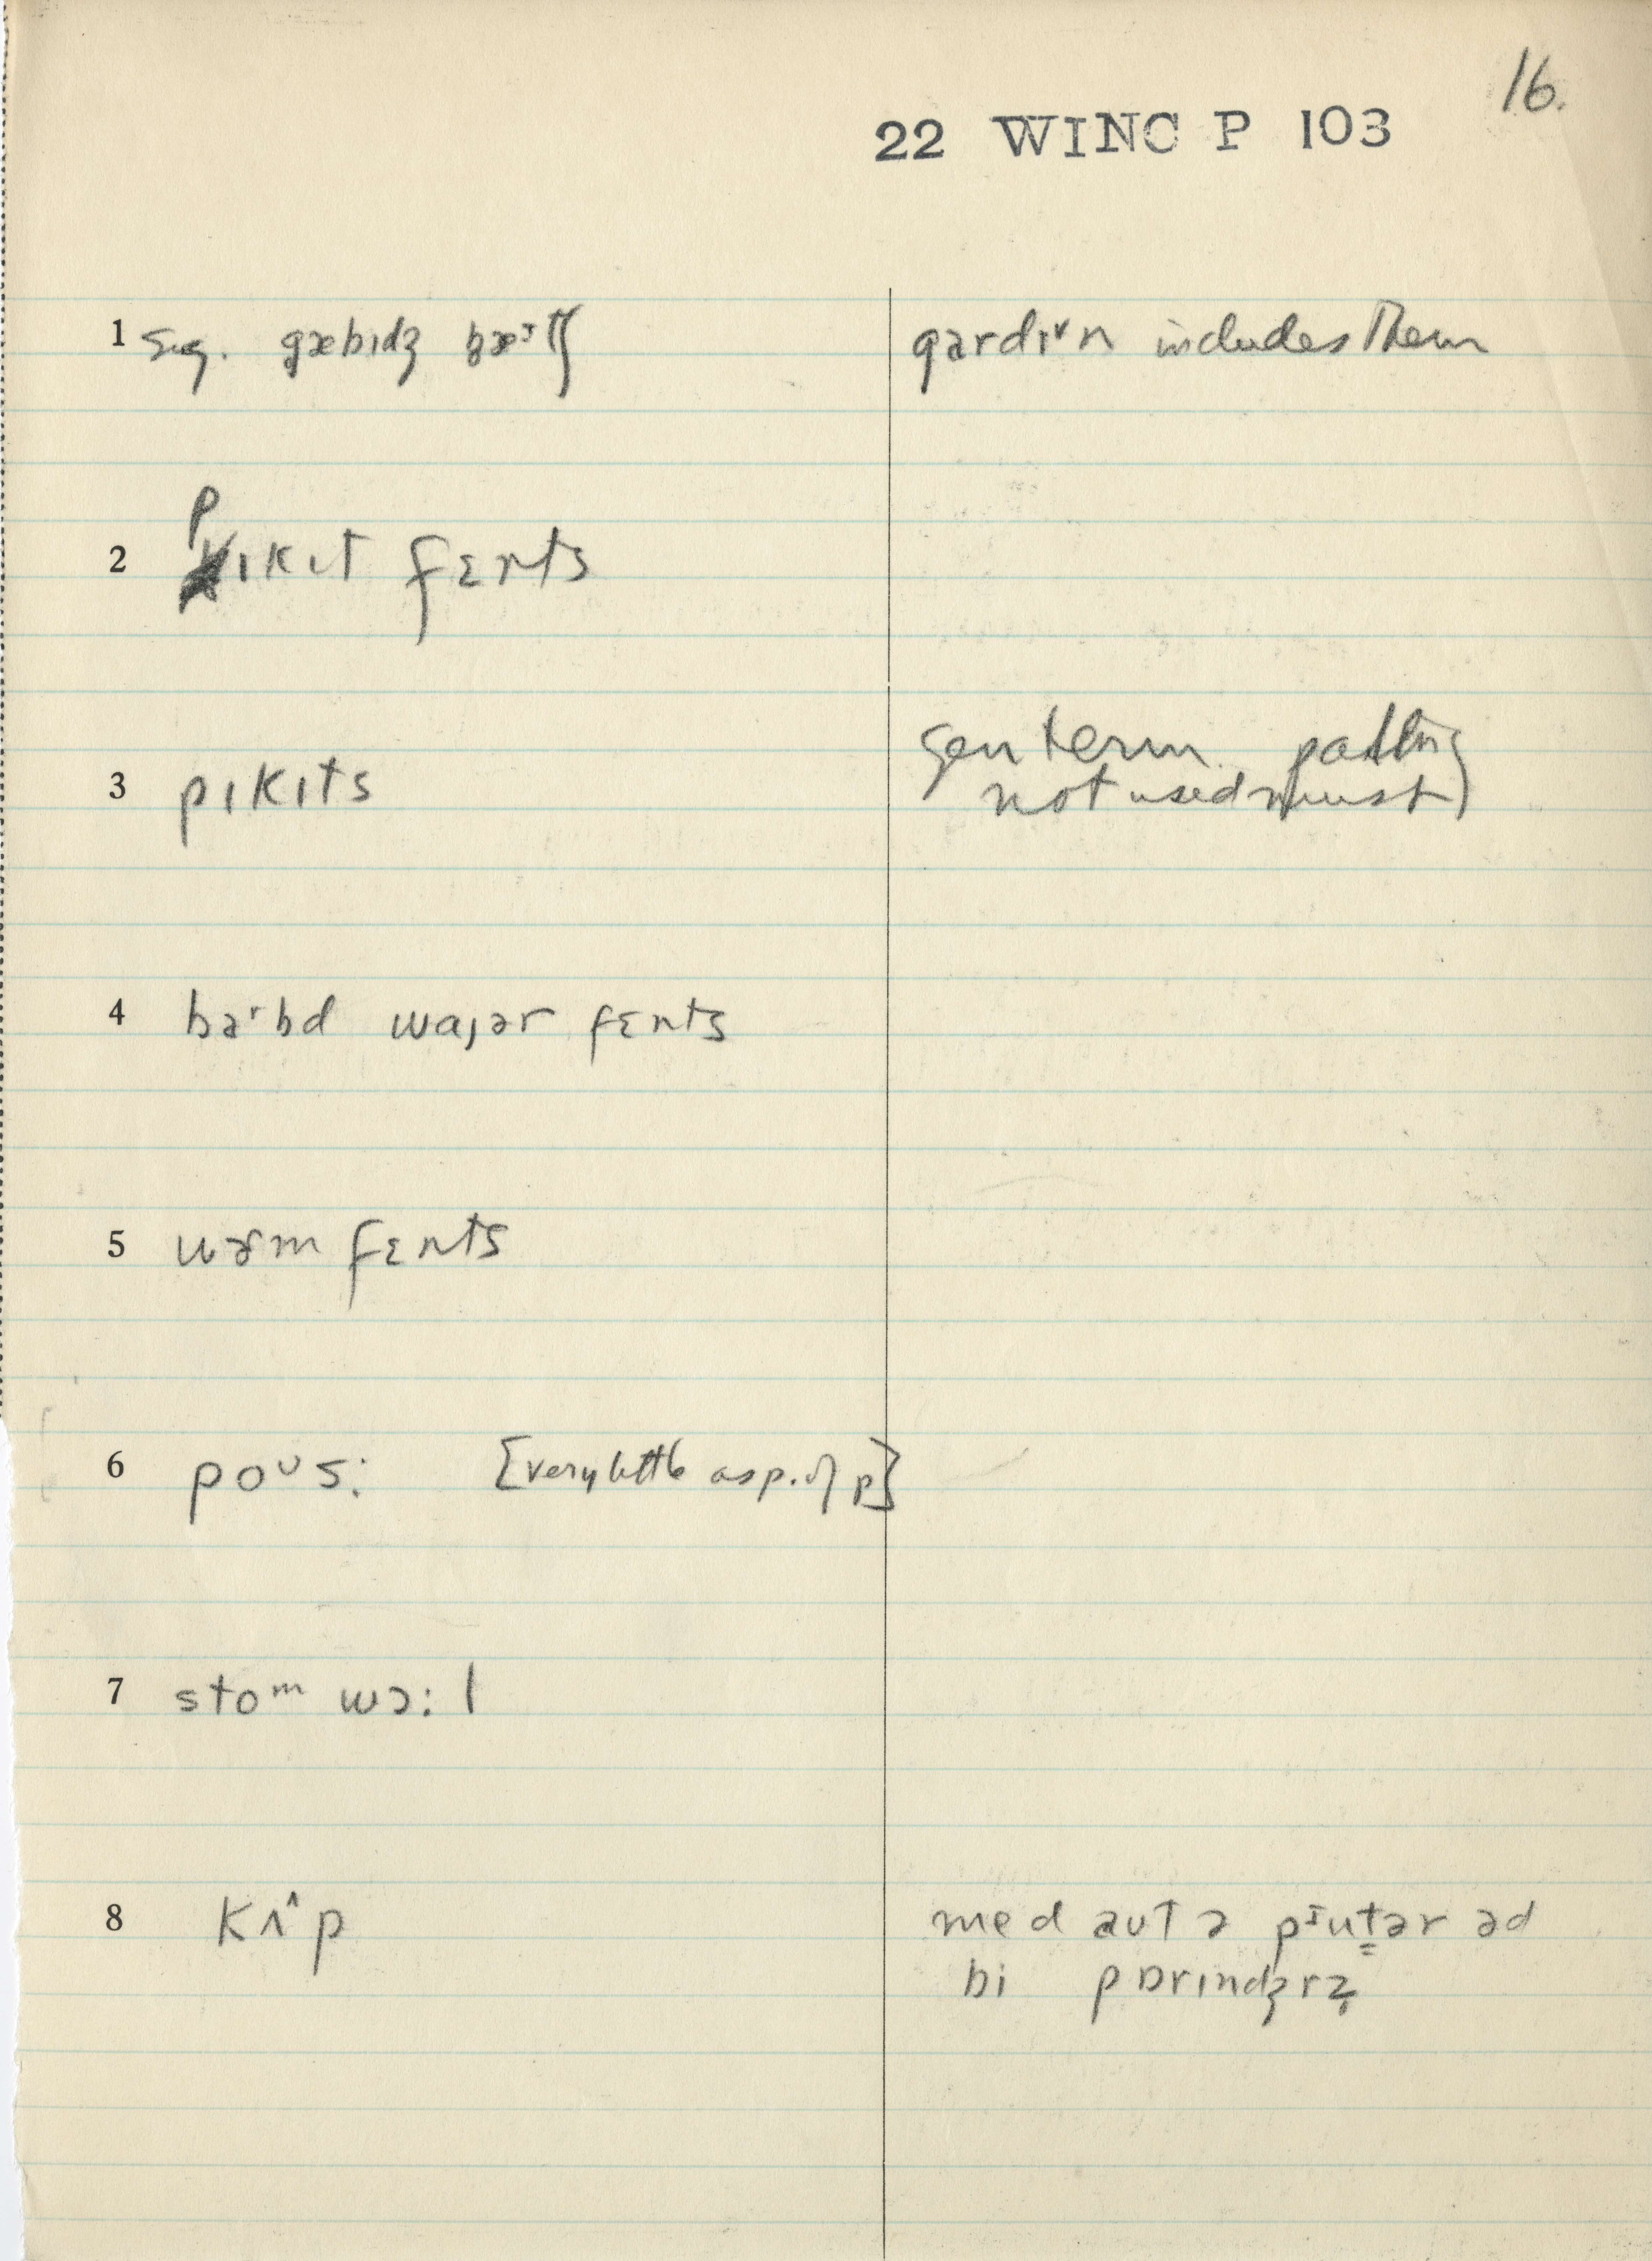 16.
22 WINC P 103
1 sug. gæbɪdʒ pæᶦtʃ
gardɪᵛn includes them
2 pɪkɪt fɛnts
3 pɪkɪts
gen term
not used
4 baʳbd waɪər fɛnts
5 wɚm fɛnts
6 poᶷs: [very little asp. of p]
7 stoᵐ wɔ:l
8 kʌ^p
med aʊt ə pᶦutər əd
bi pɒrɪndʒrz